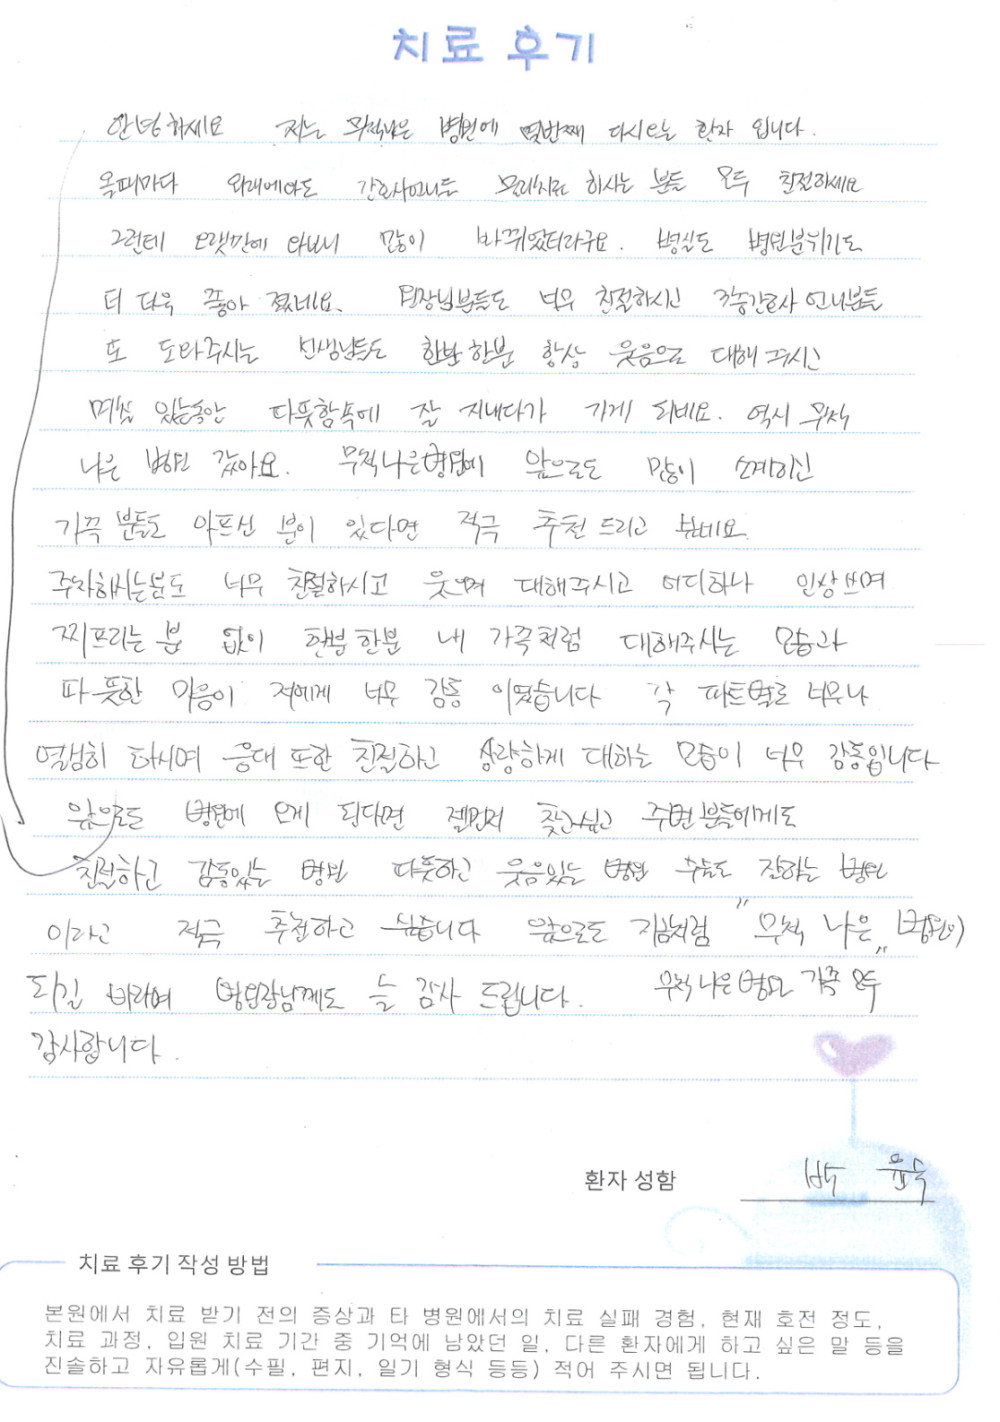 치료 후기
안녕하세요 저는 무척나은 병원에 몇번째 다시오는 환자 입니다.
올때마다 외래에와도 간호사언니들 물리치료 하시는 분들 모두 친절하세요
그런데 오랫만에 와보니 많이 바뀌었더라구요. 병실도 병원분위기도
더 더욱 좋아 졌네요. 원장님분들도 너무 친절하시긴 3층간호사 언니분들
또 도와주시는 선생님들도 한분 한분 항상 웃음으로 대해 주시긴
며칠 있는동안 따뜻함속에 잘 지내다가 가게 되네요. 역시 무척
나은 병원 같아요. 무척나은병원에 앞으로도 많이 소개하긴
가족 분들도 아프신 분이 있다면 적극 추천 드리고 싶네요.
주차하시는분도 너무 친절하시고 웃으며 대해주시고 어디하나 인상쓰며
찌프리는 분 없이 한분 한분 내 가족처럼 대해주시는 모습과
따뜻한 마음이 저에게 너무 감동 이였습니다 각 파트별로 너무나
열심히 하시며 응대 또한 친절하고 상냥하게 대하는 모습이 너무 감동입니다
앞으로도 병원에 오게 된다면 젤먼저 찾고싶고 주변분들에게도
친절하고 감동있는 병원 따뜻하고 웃음있는 병원 수술도 잘하는 병원
이라고 적극 추천하고 싶습니다 앞으로도 지금처럼 "무척 나은" 병원이
되길 바라며 병원장님께도 늘 감사 드립니다. 무척나은병원 가족 모두
감사합니다.
환자 성함 박
치료 후기 작성 방법
본원에서 치료 받기 전의 증상과 타 병원에서의 치료 실패 경험, 현재 호전 정도,
치료 과정, 입원 치료 기간 중 기억에 남았던 일, 다른 환자에게 하고 싶은 말 등을
진솔하고 자유롭게(수필, 편지, 일기 형식 등등) 적어 주시면 됩니다.